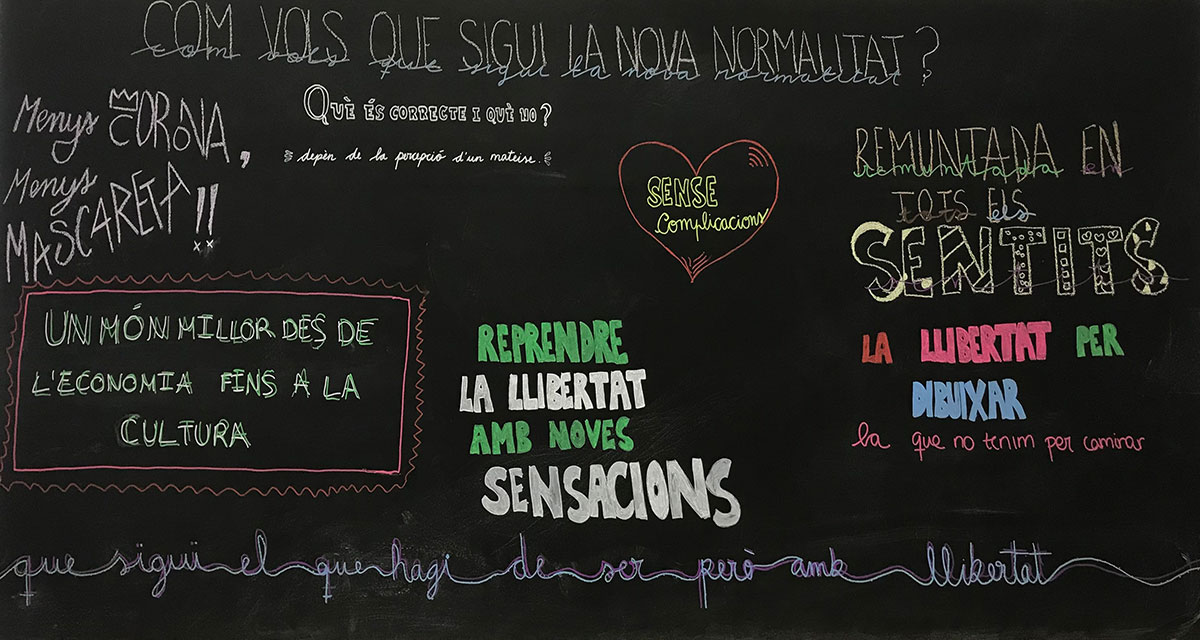 COM VOLS QUE SIGUI LA NOVA NORMALITAT?
com vols que sigui la nova normalitat
Menys CORONA,
Menys
MASCARETA!!
QUÈ ÉS CORRECTE I QUÈ NO?
depèn de la percepció d'un mateixe.
SENSE
Complicacions
REMUNTADA EN
remuntada en
TOTS ELS
tots els
SENTITS
UN MÓN MILLOR DES DE
L'ECONOMIA FINS A LA
CULTURA
REPRENDRE
LA LLIBERTAT
AMB NOVES
SENSACIONS
LA LLIBERTAT PER
DIBUIXAR
la que no tenim per caminar
que sigui el que hagi de ser però amb llibertat